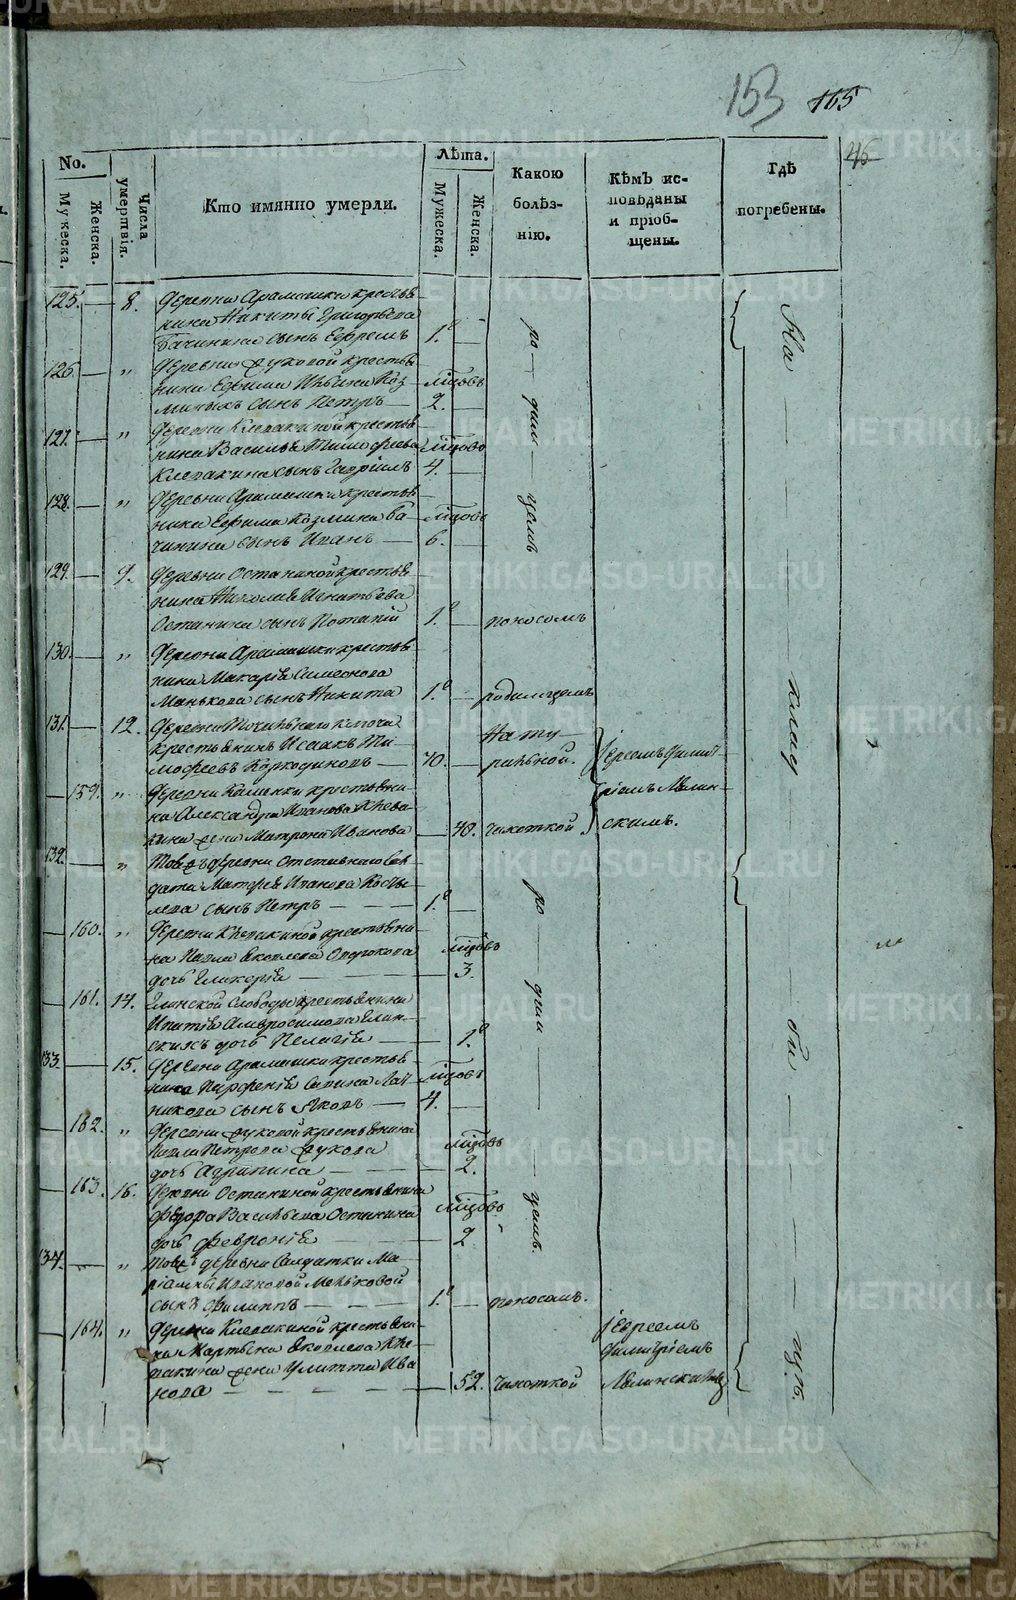 153 165
46
No.
Мужеска.
Женска.
Числа умертвія.
Кто имянно умерли.
Лѣта.
Мужеска.
Женска.
Какою
болѣз-
нію.
Кѣмъ ис-
повѣданы
и пріоб-
щены.
Гдѣ
погребены.
125. — 8. Деревни Арамашки крестья
нина Никиты Григорьева
Бачинина сынъ Ефремъ 1.
126. — „ Деревни Жуковой крестья
нина Ефима Ильина Коз
миныхъ сынъ Петръ — мцовъ 2.
127. — „ Деревни Клевакиной крестья
нина Василья Тимофеева
Клевакина сынъ Гавріилъ мцовъ 4.
128. — „ Деревни Арамашки крестья
нина Ефима Козмина Ба
чинина сынъ Иванъ — мцовъ 6.
ро — дим — цемъ
129. — 9. Деревни Останиной крестья
нина Николая Игнатьева
Останина сынъ Потапій 1. — поносомъ
130. — „ Деревни Арамашки крестья
нина Макарія Симеонова
Манькова сынъ Никита 1. — родимцемъ
131. — 12. Деревни Точильнаго Ключа
крестьянинъ Исаакъ Ти
мофеевъ Коркодиновъ — 70. — Нату
ральной. Іереемъ Дими
тріемъ Ляпин
скимъ.
— 159. „ Деревни Каменки крестьяни
на Александра Иванова Клева
кина жена Матрона Иванова — 48. чахоткой
132. „ Тояжъ деревни отставнаго сол
дата Матфея Иванова Косты
лева сынъ Петръ — — — 1.
— 160. „ Деревни Клевакиной крестьяни
на Павла Яковлева Сторожкова
дочь Гликерія — мцовъ 3.
— 161. 14. Глинской Слободы крестьянина
Ипатія Амвросимова Глин
скихъ дочь Пелагія — 1.
133. — 15. Деревни Арамашки крестья
нина Парфенія Савина Лач
никова сынъ Яковъ — мцовъ 4.
— 162. „ Деревни Жуковой крестьянина
Павла Петрова Жукова
дочь Агрипина — мцовъ 2.
— 163. 16. Деревни Останиной крестьянина
Федора Васильева Останина
дочь Февронія — мцовъ 2
ро — дим — цемъ.
134. — „ Тояжъ деревни Солдатки Ма
ріамны Ивановой Меньковой
сынъ Филиппъ — — — 1. — поносомъ.
— 164. „ Деревни Клевакиной крестьяни
на Мартына Яковлева Кле
вакина жена Улитта Ива
нова — — — 52. чахоткой
Іереемъ
Димитріемъ
Ляпинскимъ
На — клад — би — щѣ.
METRIKI.GASO-URAL.RU